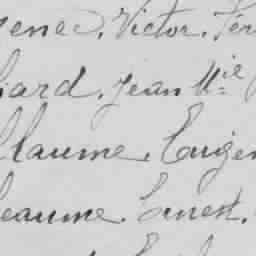 zenec, Victor, Fer
hard, Jean Mie
llaume, Eugen
leaume, Ernest,